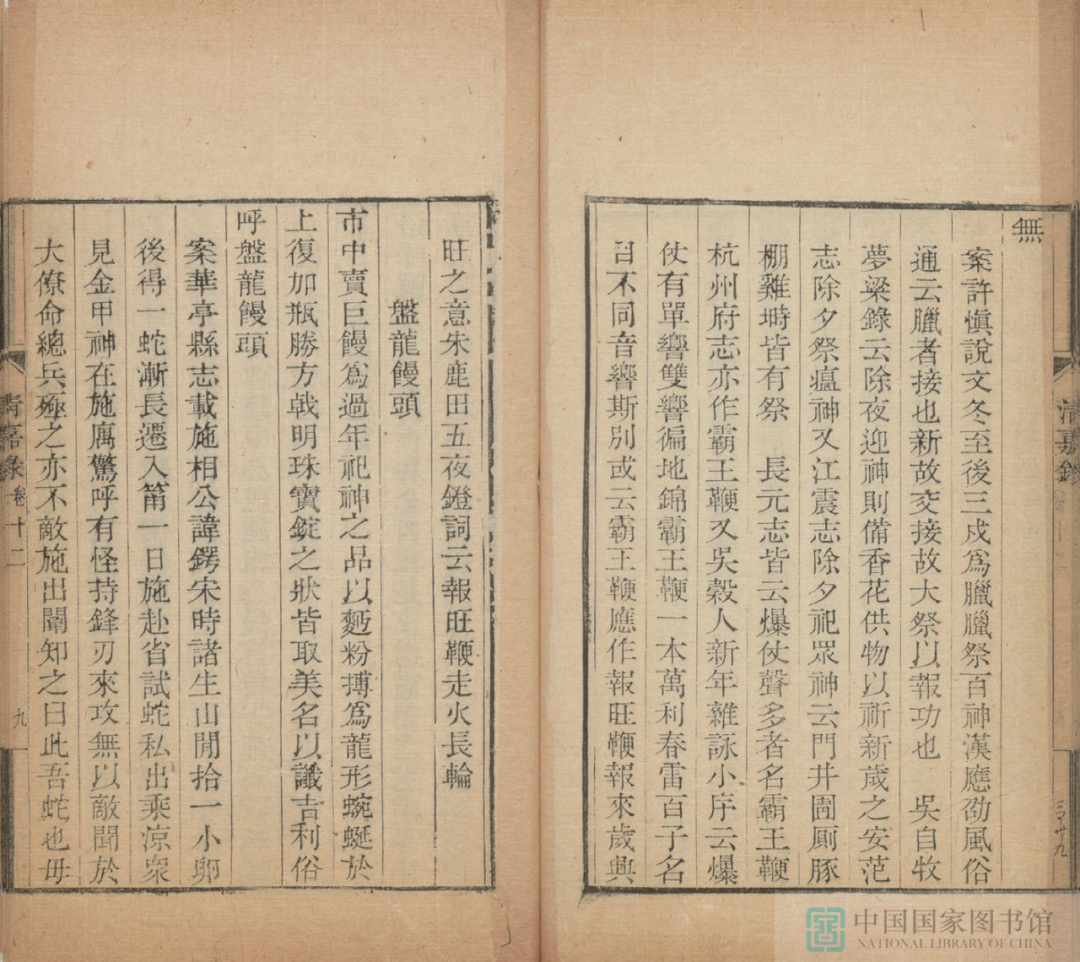 無
案許愼說文冬至後三戍爲臘臘祭百神漢應劭風俗
通云臘者接也新故交接故大祭以報功也　吳自牧
夢梁錄云除夜迎神則備香花供物以祈新歲之安范
志除夕祭瘟神又江震志除夕祀眾神云門井圊厠豚
棚雞塒皆有祭　長元志皆云爆仗聲多者名霸王鞭
杭州府志亦作霸王鞭又吳穀人新年雜詠小序云爆
仗有單響雙響徧地錦霸王鞭一本萬利春雷百子名
目不同音響斯別或云霸王鞭應作報旺鞭報來歲興
旺之意朱鹿田五夜鐙詞云報旺鞭走火長輪
盤龍饅頭
市中賣巨饅爲過年祀神之品以麪粉摶爲龍形蜿蜒於
上復加瓶勝方戟明珠寶錠之狀皆取美名以讖吉利俗
呼盤龍饅頭
案華亭縣志載施相公諱鍔宋時諸生山閒拾一小卵
後得一蛇漸長遷入筩一日施赴省試蛇私出乘涼衆
見金甲神在施㝢驚呼有怪持鋒刃來攻無以敵聞於
大僚命總兵殛之亦不敵施出闈知之曰此吾蛇也毋
清嘉錄
三廿九
清嘉錄 卷十二
九
中国国家图书馆
NATIONAL LIBRARY OF CHINA